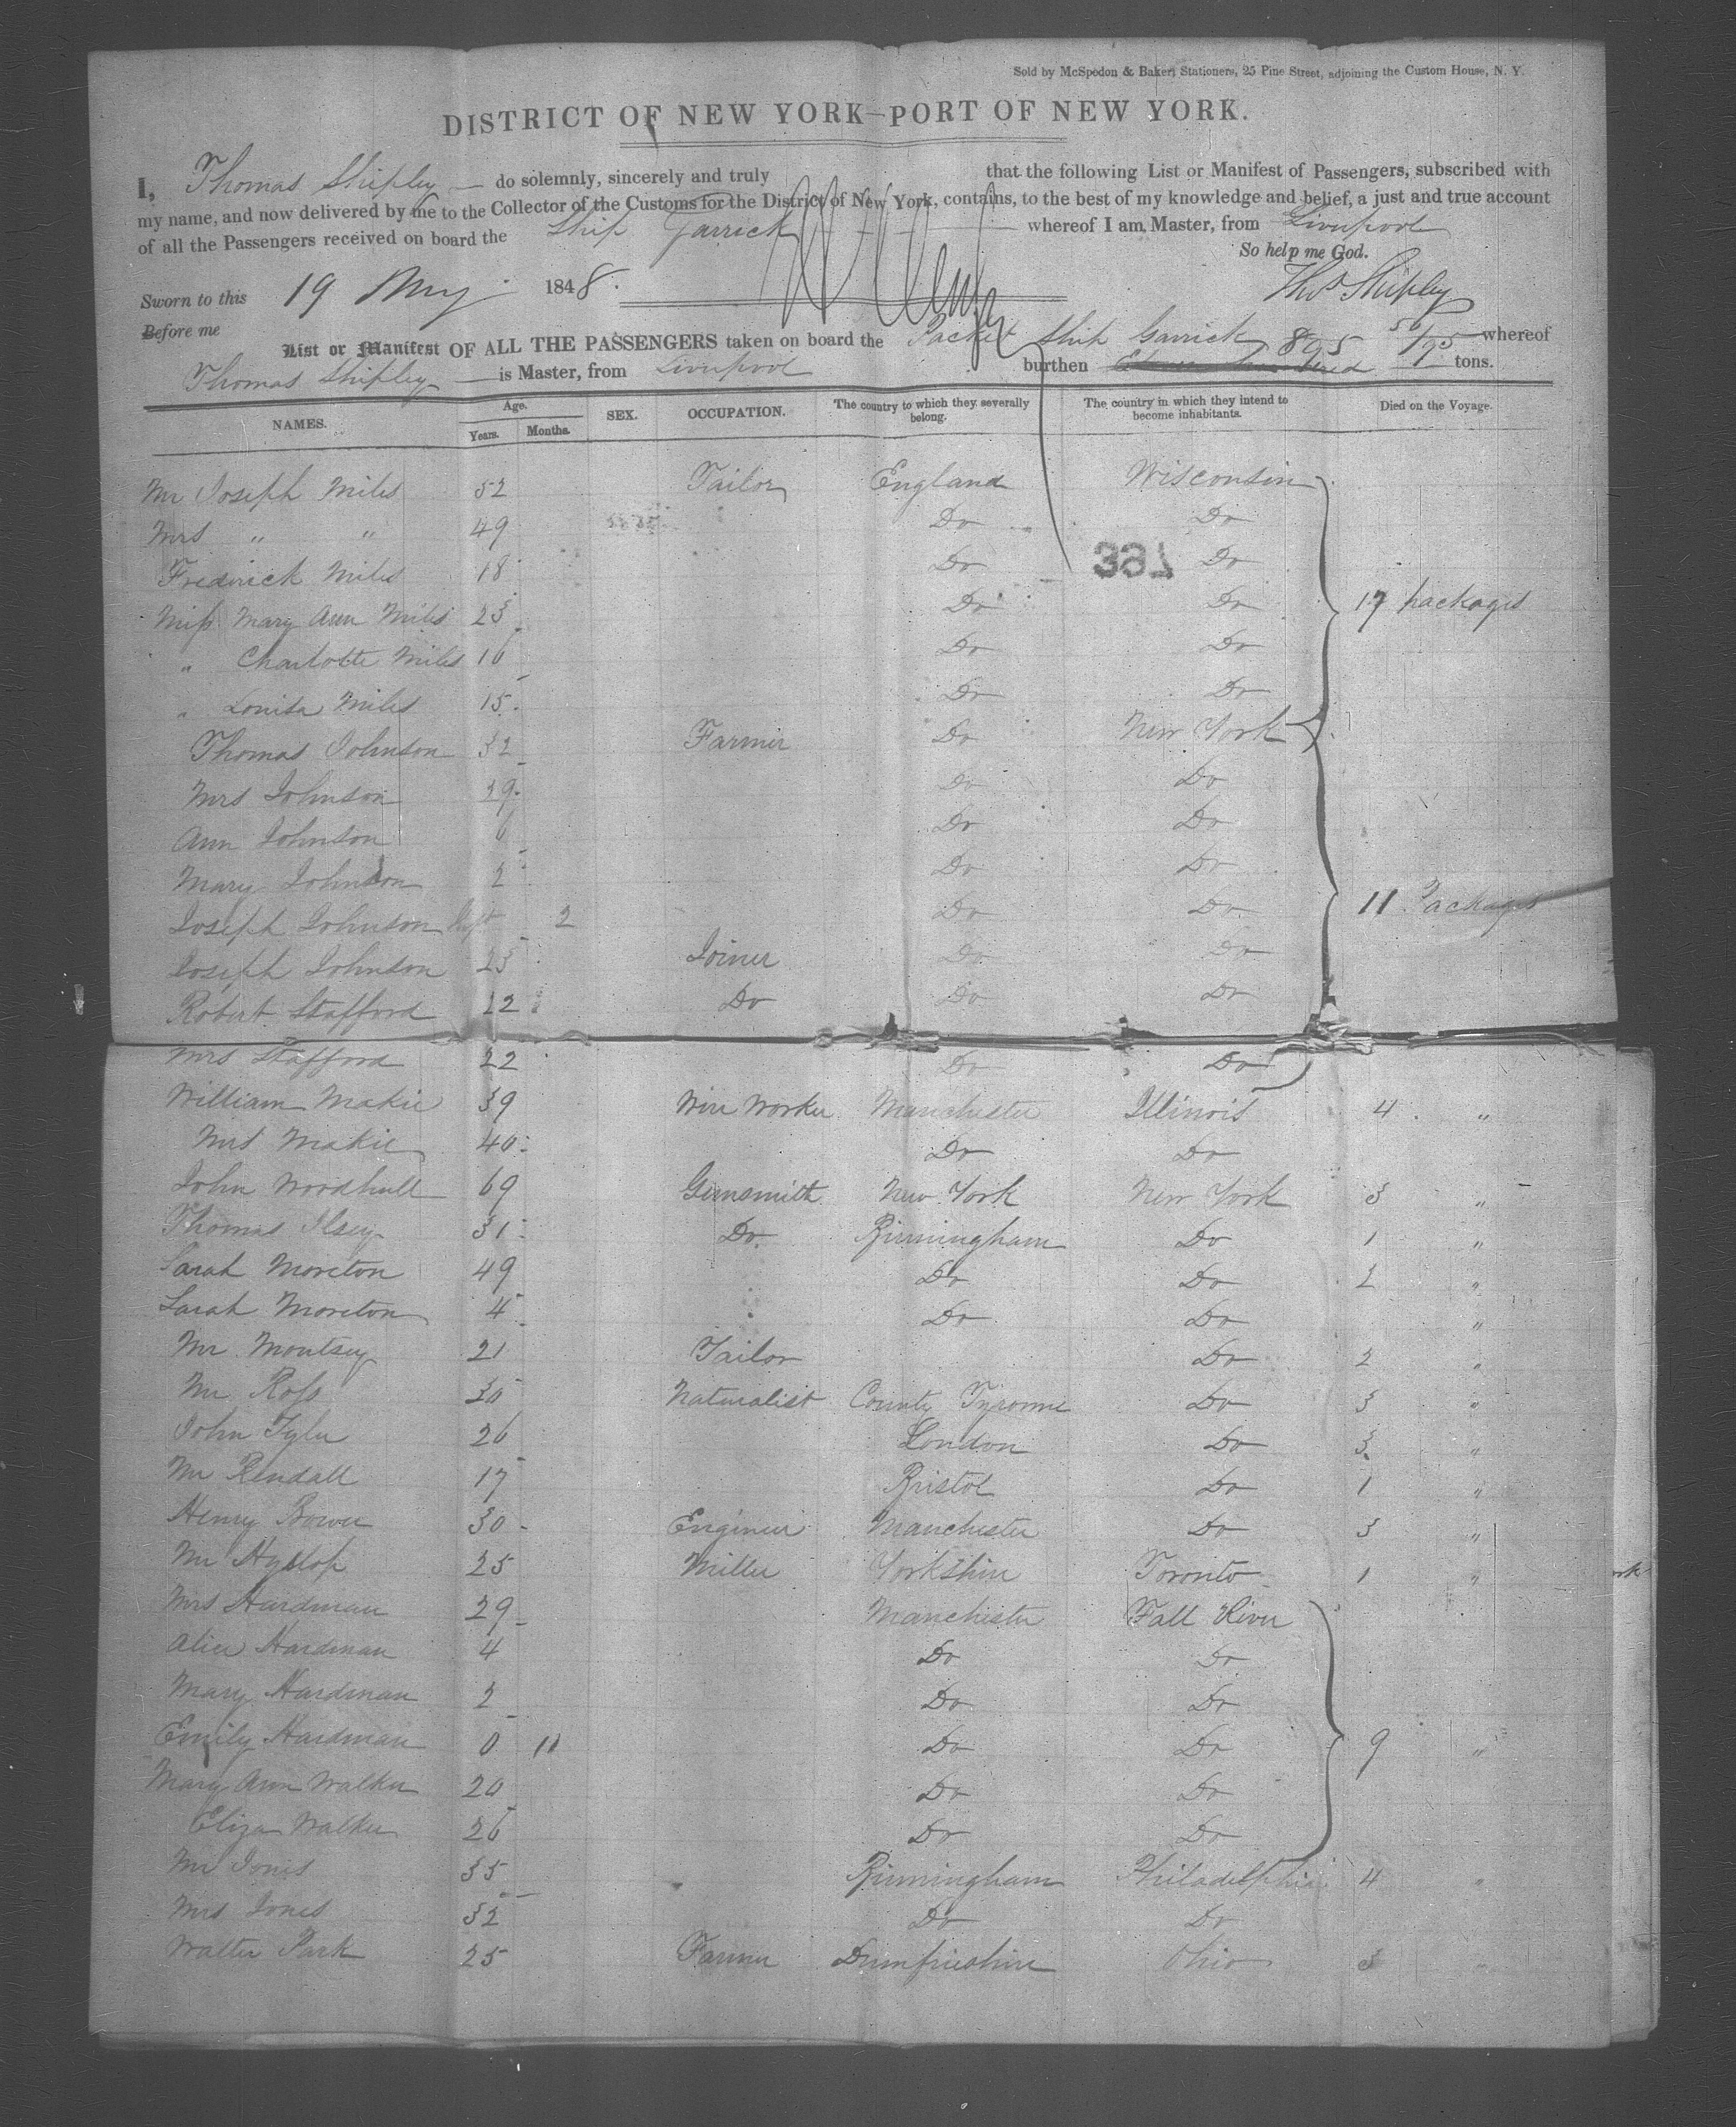 Sold by McSpedon & Baker, Stationers, 25 Pine Street, adjoining the Custom House, N. Y.
DISTRICT OF NEW YORK—PORT OF NEW YORK.
I, Thomas Shipley — do solemnly, sincerely and truly that the following List or Manifest of Passengers, subscribed with
my name, and now delivered by me to the Collector of the Customs for the District of New York, contains, to the best of my knowledge and belief, a just and true account
of all the Passengers received on board the Ship Garrick whereof I am Master, from Liverpool
So help me God.
Sworn to this 19 May 1848. Thos Shipley
Before me
List or Manifest OF ALL THE PASSENGERS taken on board the Packet Ship Garrick 895 whereof
Thomas Shipley — is Master, from Liverpool burthen tons.
NAMES. Age. Years. Months. SEX. OCCUPATION. The country to which they severally belong. The country in which they intend to become inhabitants. Died on the Voyage.
Mr Joseph Miles 52 Tailor England Wisconsin
Mrs " " 49 Do Do
367
Frederick Miles 18 Do Do
Miss Mary Ann Miles 23 Do Do 17 packages
" Charlotte Miles 16 Do Do
" Louisa Miles 15 Do Do
Thomas Johnson 32 Farmer Do New York
Mrs Johnson 29 Do Do
Ann Johnson 6 Do Do
Mary Johnson 2 Do Do
Joseph Johnson 2 Do Do 11 Packages
Joseph Johnson 25 Joiner Do Do
Robert Stafford 22 Do Do Do
Mrs Stafford 22 Do Do
William Makie 39 Wire Worker Manchester Illinois 4 "
Mrs Makie 40 Do Do
John Woodhull 69 Gunsmith New York New York 3 "
Thomas Ilsey 31 Do Birmingham Do 1 "
Sarah Moreton 49 Do Do 2 "
Sarah Moreton 4 Do Do "
Mr Montsey 21 Tailor Do 2 "
Mr Ross 30 Naturalist County Tyronne Do 3 "
John Tyler 26 London Do 3 "
Mr Rendall 17 Bristol Do 1 "
Henry Bower 30 Engineer Manchester Do 3 "
Mr Hyslop 25 Miller Yorkshire Toronto 1 "
Mrs Hardman 29 Manchester Fall River
Alice Hardman 4 Do Do
Mary Hardman 2 Do Do
Emily Hardman 0 11 Do Do 9 "
Mary Ann Walker 20 Do Do
Eliza Walker 26 Do Do
Mr Jones 35 Birmingham Philadelphia 4 "
Mrs Jones 32 Do Do
Walter Park 25 Farmer Dumfrieshire Ohio 3 "